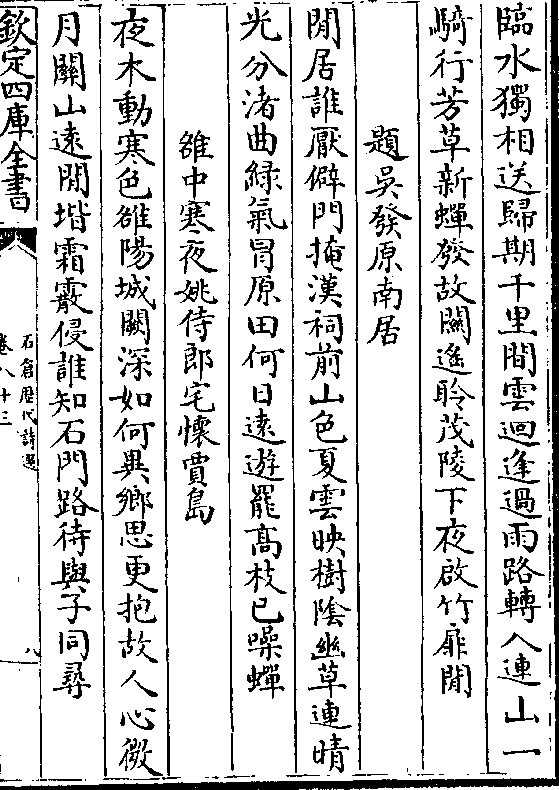 臨水獨相送歸期千里間雲迴逢過雨路轉入連山一
騎行芳草新蟬發故關遙聆茂陵下夜啟竹扉閒
題吳發原南居
閒居誰厭僻門掩漢祠前山色夏雲映樹陰幽草連晴
光分渚曲綠氣冒原田何日遠遊罷高枝已噪蟬
雒中寒夜姚侍郎宅懷賈島
夜木動寒色雒陽城闕深如何異鄉思更抱故人心微
月關山遠閒堦霜霰侵誰知石門路待與子同尋
欽定四庫全書
石倉歷代詩選
卷八十三
八